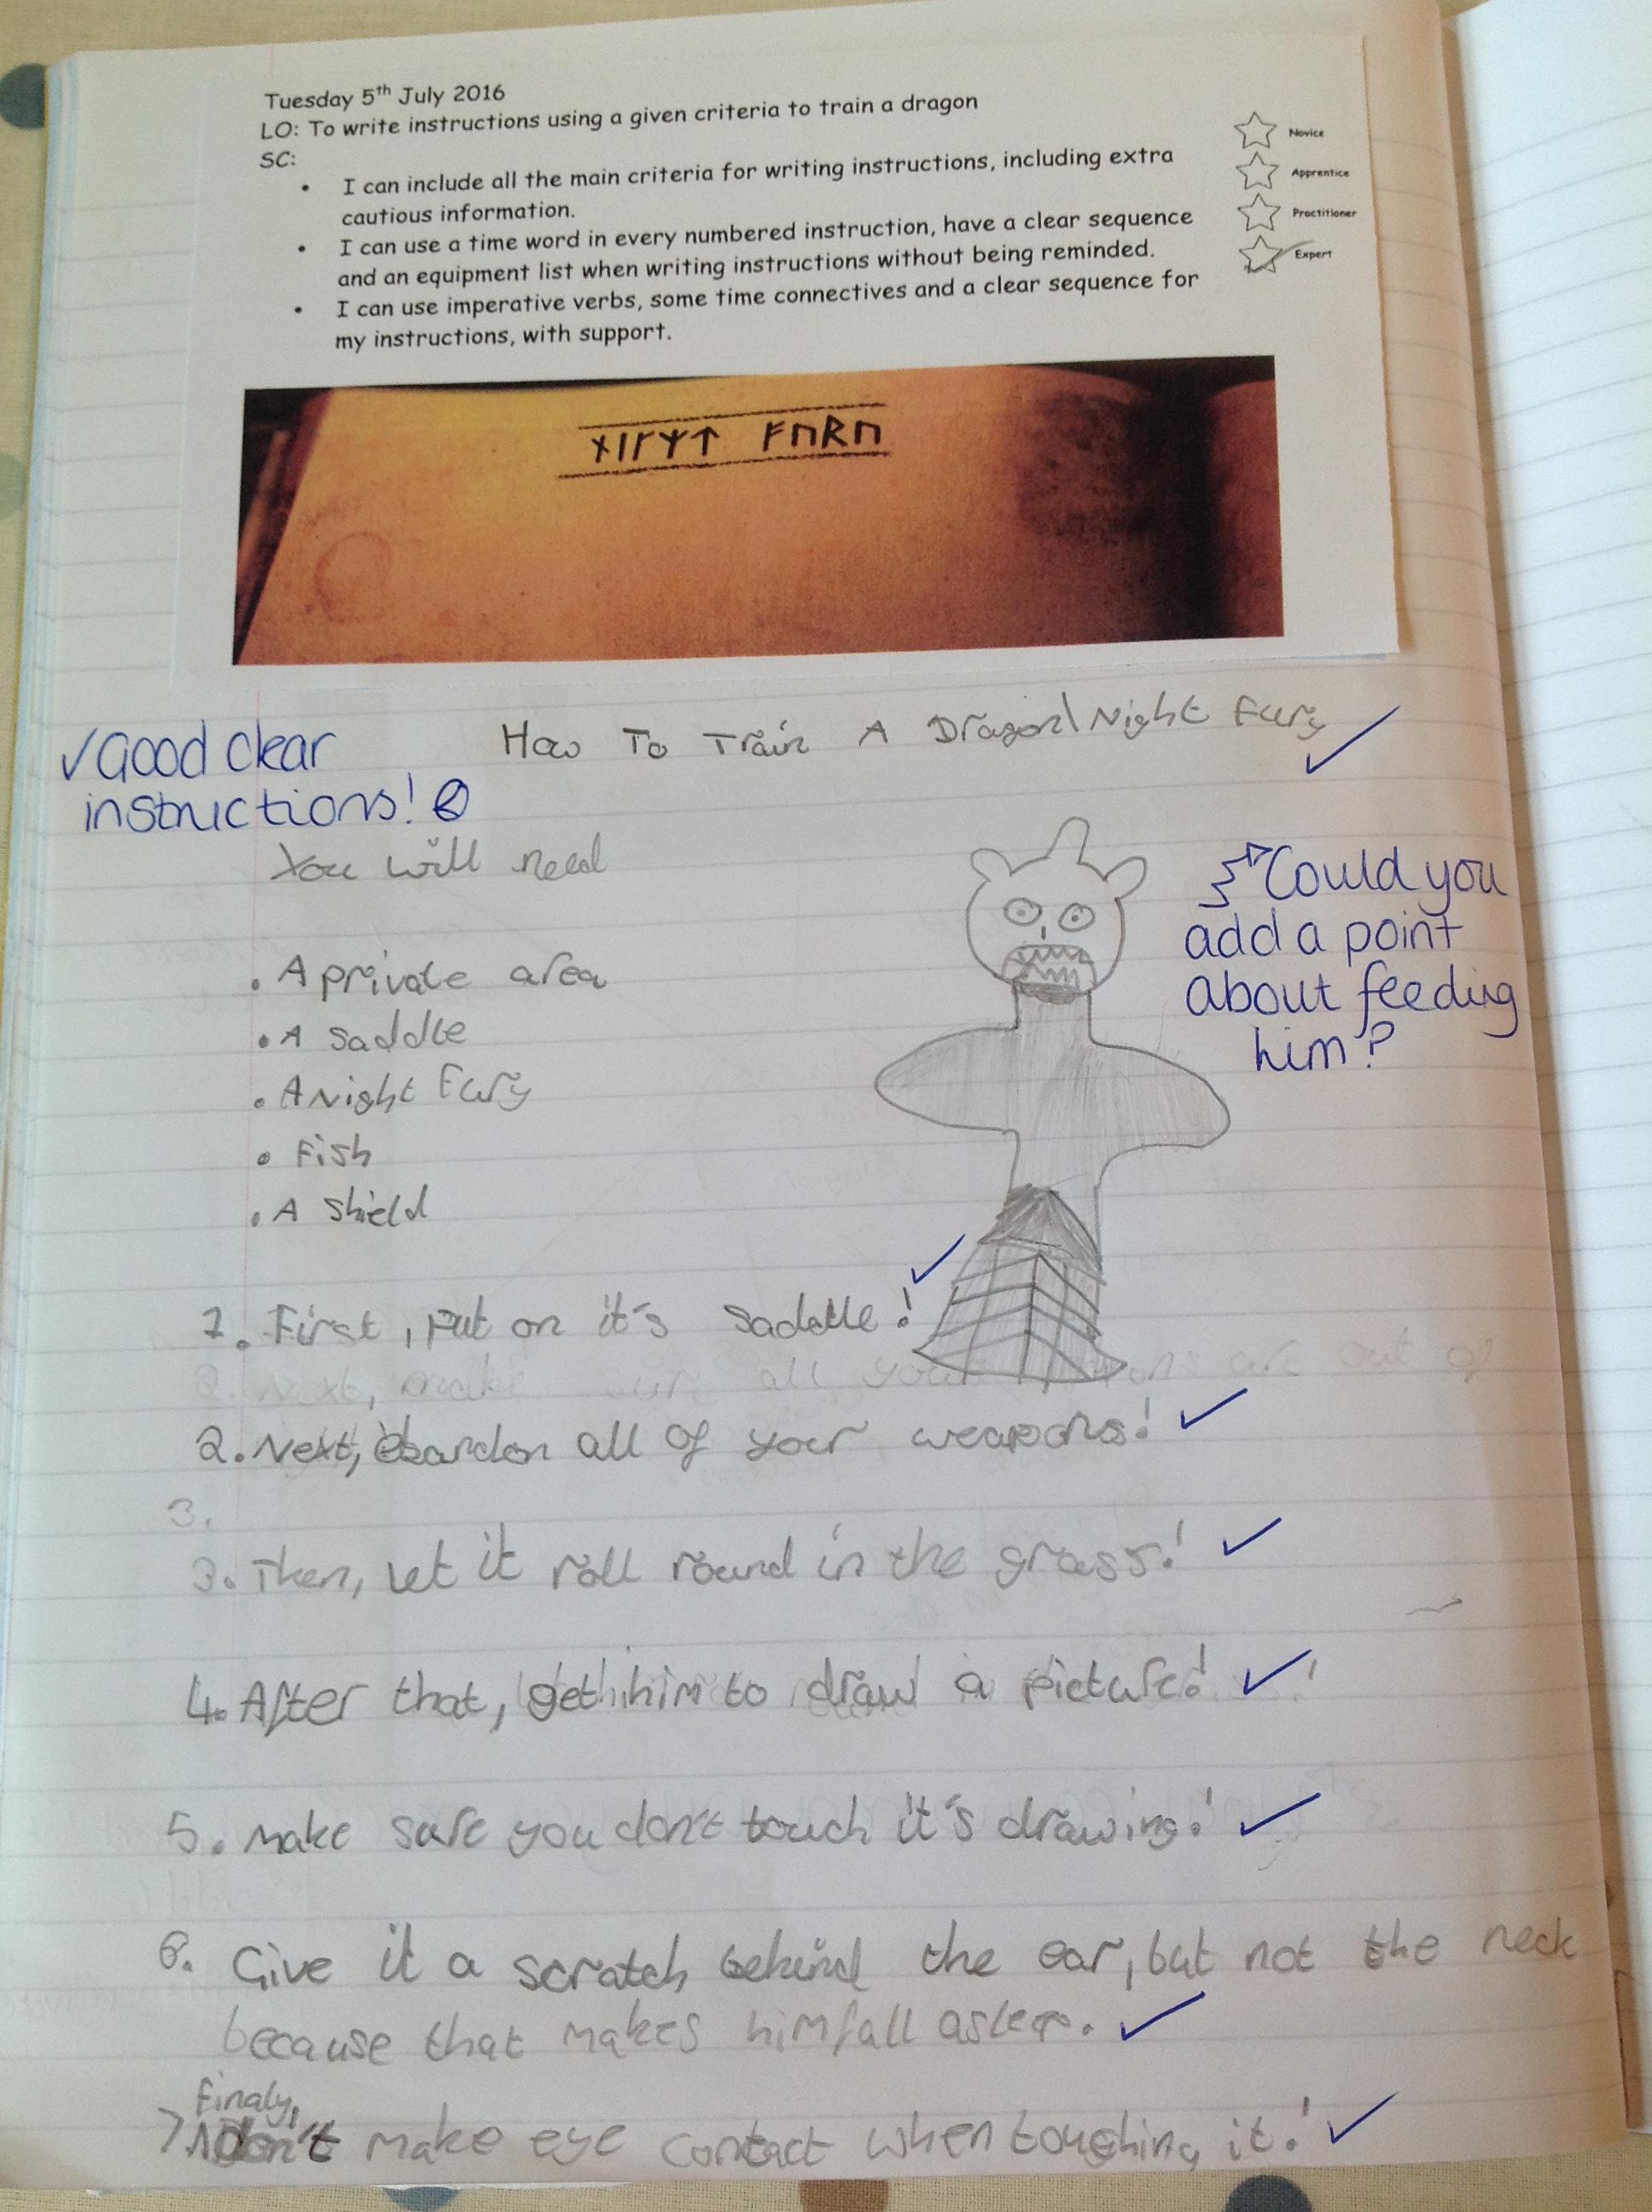 Tuesday 5th July 2016
LO: To write instructions using a given criteria to train a dragon
SC:
• I can include all the main criteria for writing instructions, including extra
cautious information.
• I can use a time word in every numbered instruction, have a clear sequence
and an equipment list when writing instructions without being reminded.
• I can use imperative verbs, some time connectives and a clear sequence for
my instructions, with support.
Novice
Apprentice
Practitioner
Expert
How To Train A Dragon\Night Fury
✓Good clear
instructions!
You will need
• A private area
• A saddle
• A Night Fury
• Fish
• A shield
Could you
add a point
about feeding
him?
1. First, put on it's saddle!
2. Next, make sure all your
2. Next, abandon all of your weapons!
3.
3. Then, let it roll round in the grass!
4. After that, get him to draw a picture!
5. Make sure you don't touch it's drawing!
6. Give it a scratch behind the ear, but not the neck
because that makes him fall asleep.
Finaly,
7 don't make eye contact when touching it!